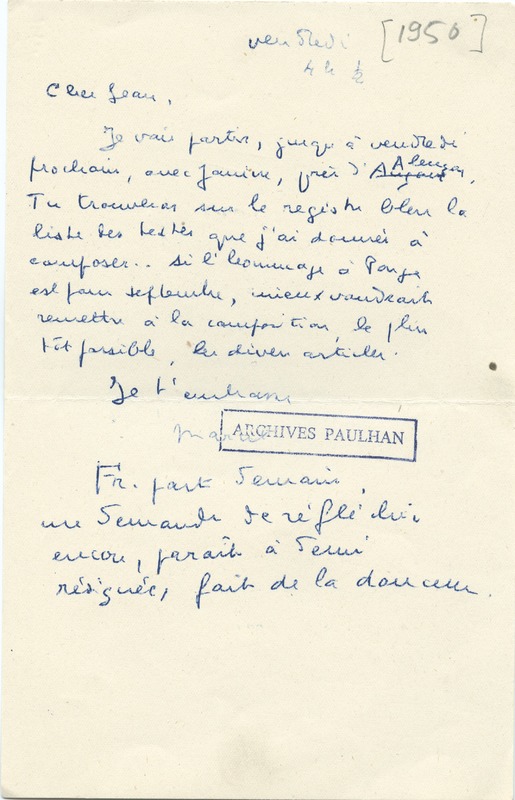 vendredi [1950]
4 h ½
Cher Jean,
Je vais partir, jusqu'à vendredi
prochain, avec Janine, près d' Alençon.
Tu trouveras sur le registre bleu la
liste des textes que j'ai donnés à
composer.. Si l'hommage à Ponge
est pour septembre, mieux vaudrait
remettre à la composition, le plus
tôt possible, les divers articles.
Je t'embrasse
Marcel
ARCHIVES PAULHAN
Fr. part demain,
me demande de réfléchir
encore, paraît à demi
résignée, fait de la douceur.